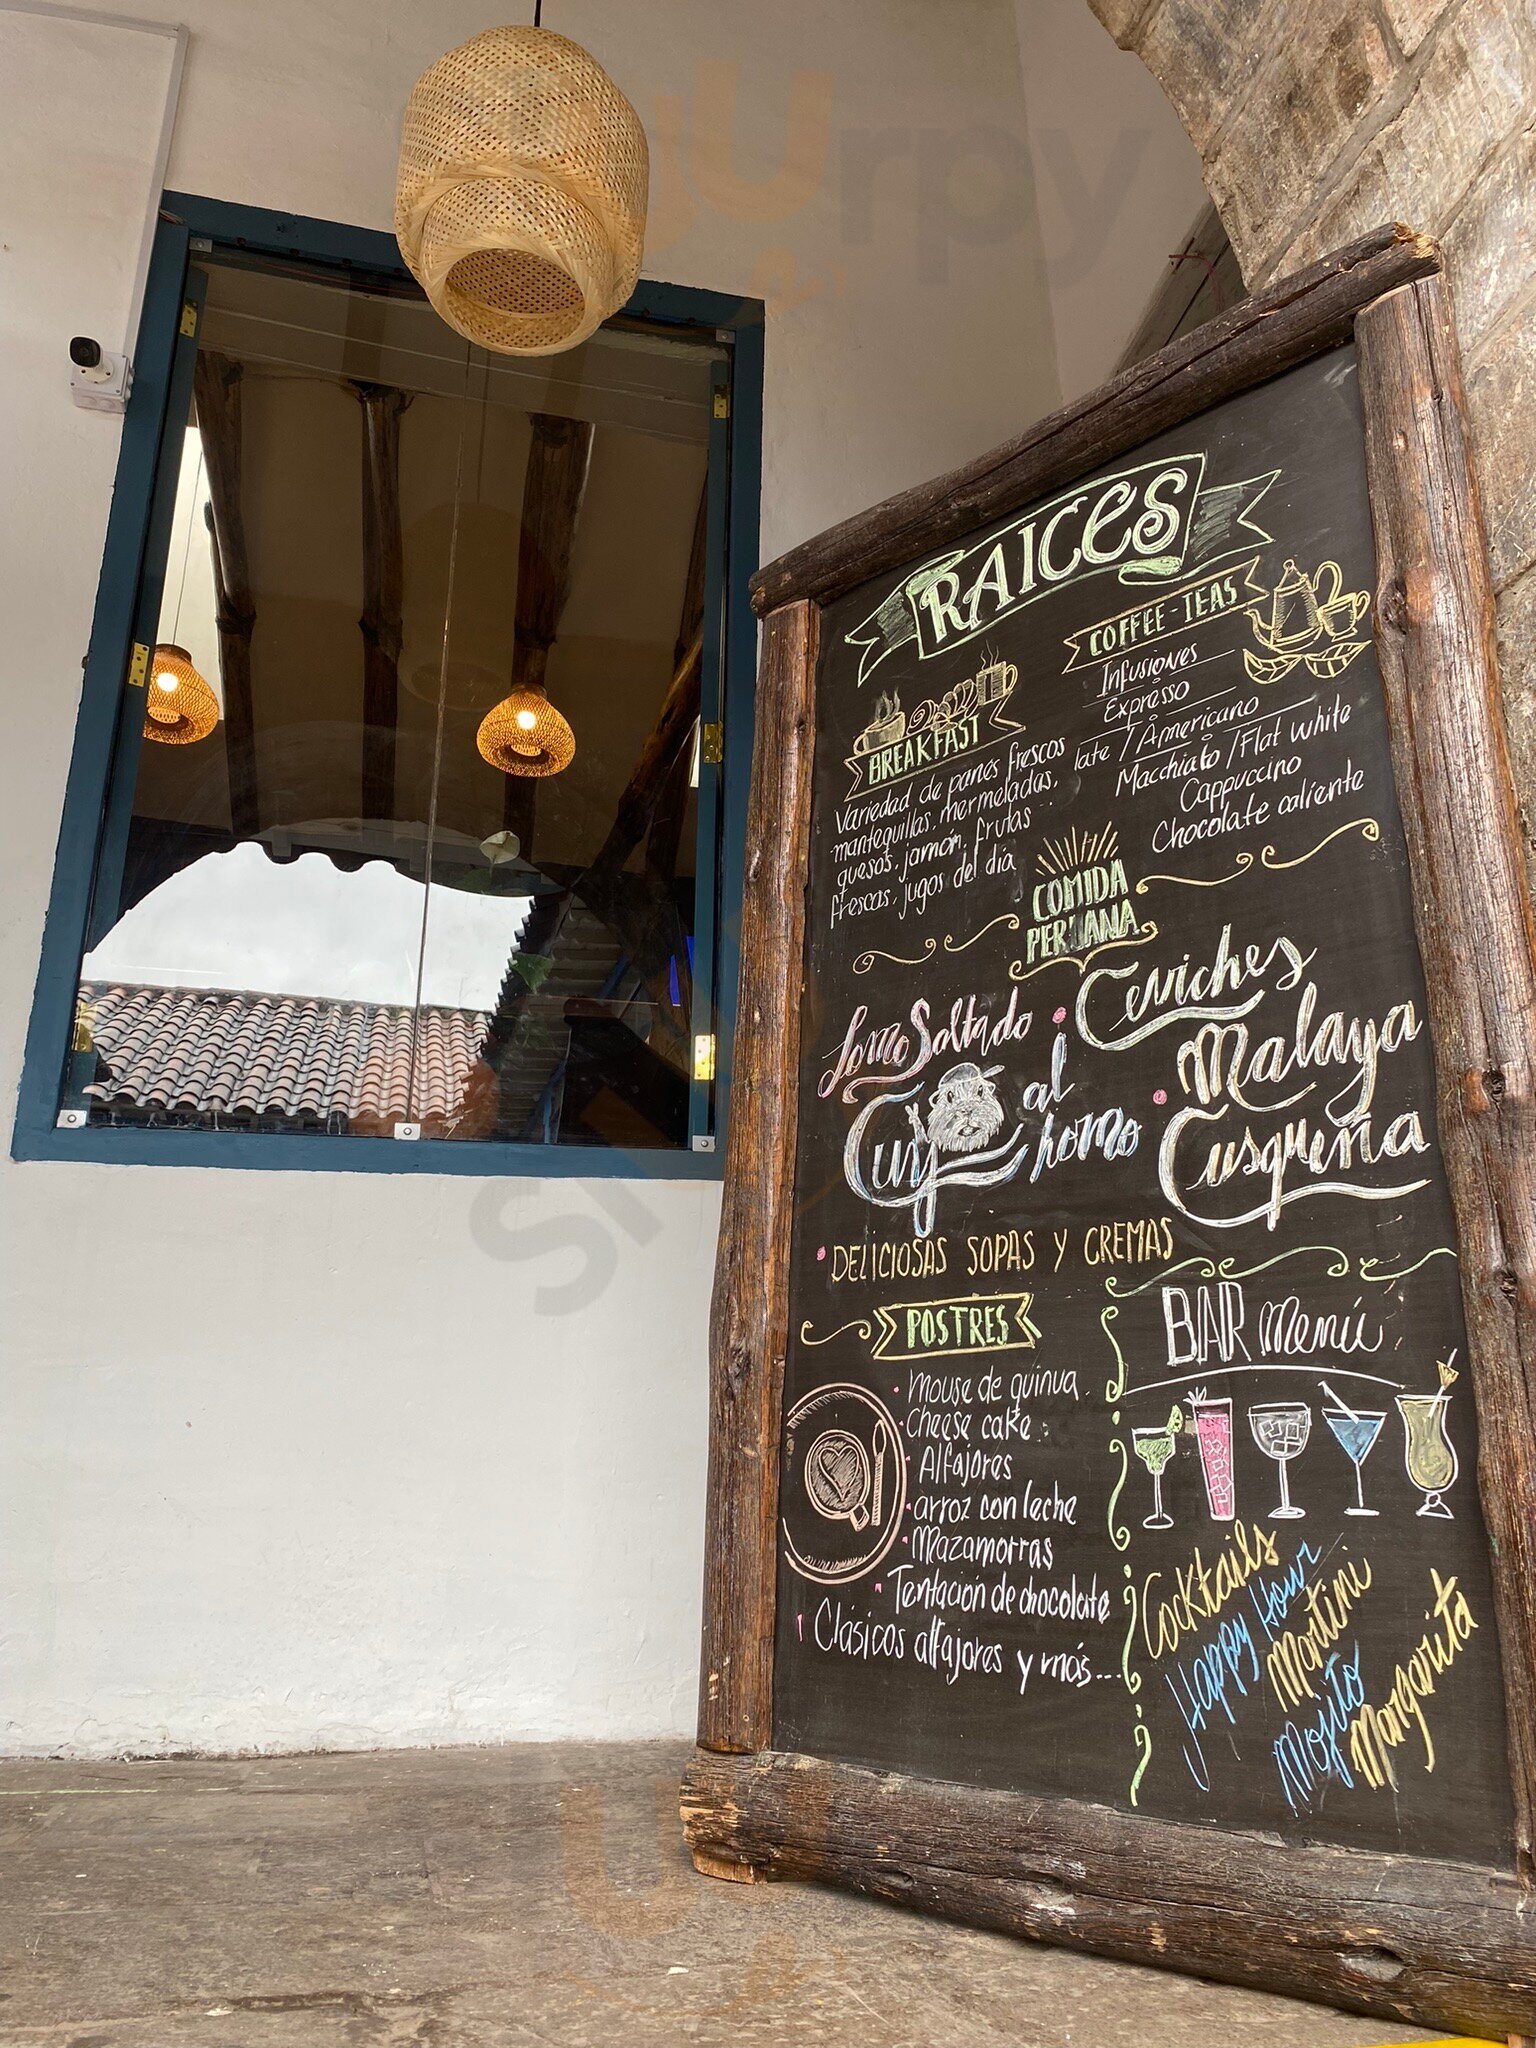 RAICES
COFFEE-TEAS
Infusiones
Expresso
late / Americano
Macchiato / Flat white
Cappuccino
Chocolate caliente
BREAKFAST
Variedad de panes frescos
mantequillas, mermeladas,
quesos, jamón, frutas
frescas, jugos del día
COMIDA
PERUANA
Lomo Saltado
Ceviches
Cuy al horno
Malaya
Cusqueña
DELICIOSAS SOPAS Y CREMAS
POSTRES
mouse de quinua
cheese cake
Alfajores
arroz con leche
Mazamorras
Tentación de chocolate
Clásicos alfajores y más...
BAR Menú
Cocktails
Happy Hour
Martini
Mojito
Margarita